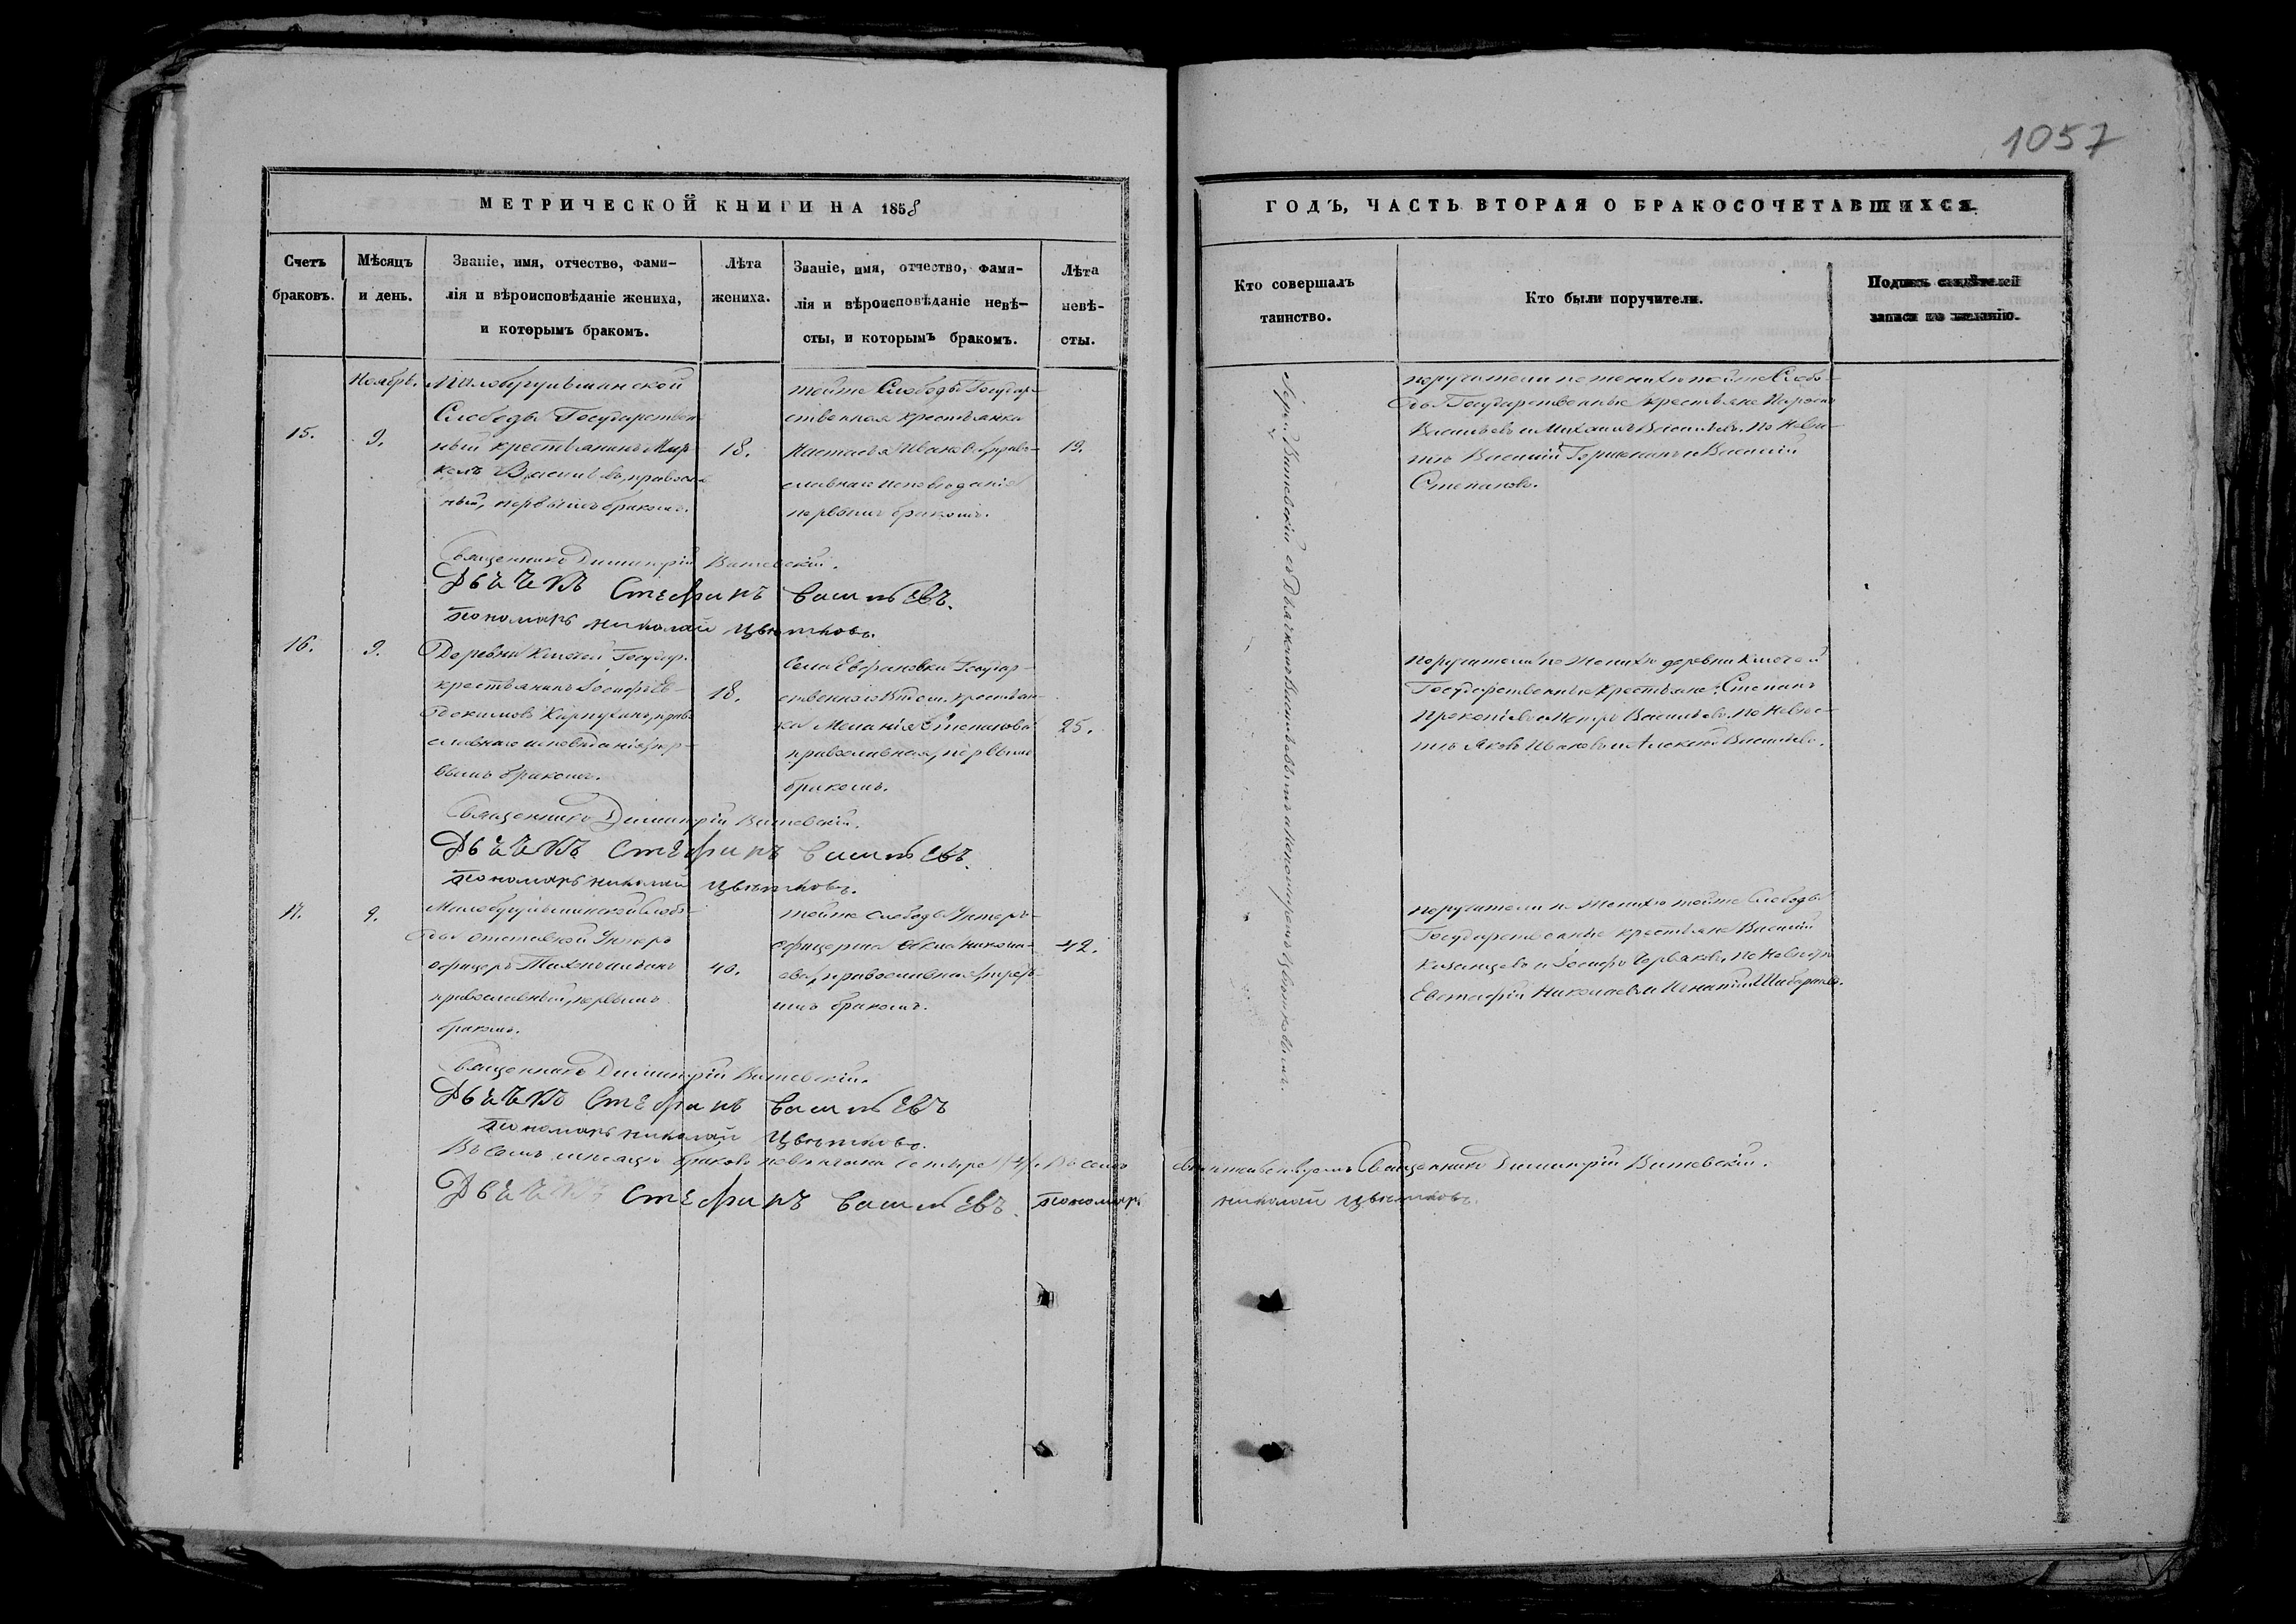 1057
МЕТРИЧЕСКОЙ КНИГИ НА 1858
ГОДЪ, ЧАСТЬ ВТОРАЯ О БРАКОСОЧЕТАВШИХСЯ.
Счетъ браковъ.
Мѣсяцъ и день.
Званіе, имя, отчество, фами-
лія и вѣроисповѣданіе жениха,
и которымъ бракомъ.
Лѣта жениха.
Званіе, имя, отчество, фами-
лія и вѣроисповѣданіе невѣ-
сты, и которымъ бракомъ.
Лѣта
невѣ-
сты.
Кто совершалъ
таинство.
Кто были поручители.
Подпись свидѣтелей
записи по желанію.
Ноябрь.
15.
9.
Слободы Государствен
ный крестьянинъ
Васильевъ, правосла
ный, первымъ бракомъ.
18.
тойже Слободы Государ-
ственная крестьянка
Настасья Иванова, право-
славнаго исповѣданія
первымъ бракомъ.
19.
Іерей Витевскій съ Дьячкомъ Васильевымъ и Пономаремъ Цвѣтковымъ.
поручители по женихѣ тойже Слобо-
ды Государственные крестьяне
Васильевъ и Михаилъ Васильевъ, по Невѣс-
тѣ Василій и Василій
Степановъ.
Священникъ Димитрій Витевскій.
Дьячекъ Стефанъ Васильевъ.
Пономарь Николай Цвѣтковъ.
16.
9.
Деревни Ключей Государ.
крестьянинъ Іосифъ Ев-
докимовъ Карпухинъ, право
славнаго исповѣданія, пер-
вымъ бракомъ.
18.
Села Государ-
ственнаго крестьян-
ка Меланія Степанова
православная, первымъ
бракомъ.
25.
Поручители по Женихѣ деревни Ключей
Государственные крестьяне: Степанъ
Прокопьевъ и Петръ Васильевъ, по Невѣс-
тѣ Яковъ Ивановъ и Алексѣй Васильевъ.
Священникъ Димитрій Витевскій.
Дьячекъ Стефанъ Васильевъ.
Пономарь Николай Цвѣтковъ.
17.
9.
Малобугульминской Слобо-
ды отставной Унтеръ
офицеръ
православный, первымъ
бракомъ.
40.
тойже слободы Унтеръ-
офицерша Никола-
ева, православная,
бракомъ.
42.
Поручители по Женихѣ тойже Слободы
Государственные крестьяне Василій
Казанцевъ и Іосифъ Червяковъ, по Невѣстѣ
Евстафій Николаевъ и Игнатій
Священникъ Димитрій Витевскій.
Дьячекъ Стефанъ Васильевъ
Пономарь Николай Цвѣтковъ.
Въ семъ мѣсяцѣ браковъ повѣнчано Въ семъ свидѣтельствуемъ Священникъ Димитрій Витевскій.
Дьячекъ Стефанъ Васильевъ. Пономарь Николай Цвѣтковъ.